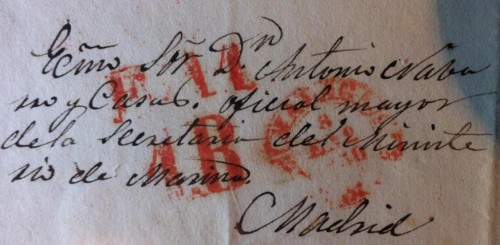 Exmo Sor Dn Antonio Nava
rro y Casas. oficial mayor
de la Secretaria del Ministe
rio de Marina.
Madrid